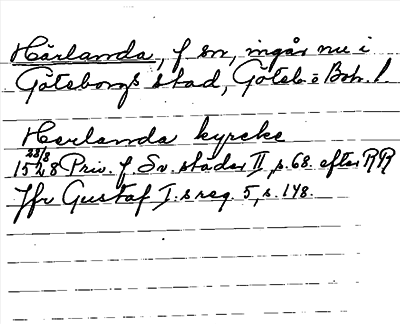 Härlanda, f sn, ingår nu i
Göteborgs stad, Göteb o Boh. l.
Herlanda kyrcke
28/8
1528 Priv. f. Sv. städer II, s. 68. efter RR
Jfr Gustaf I:s reg. 5, s. 148.